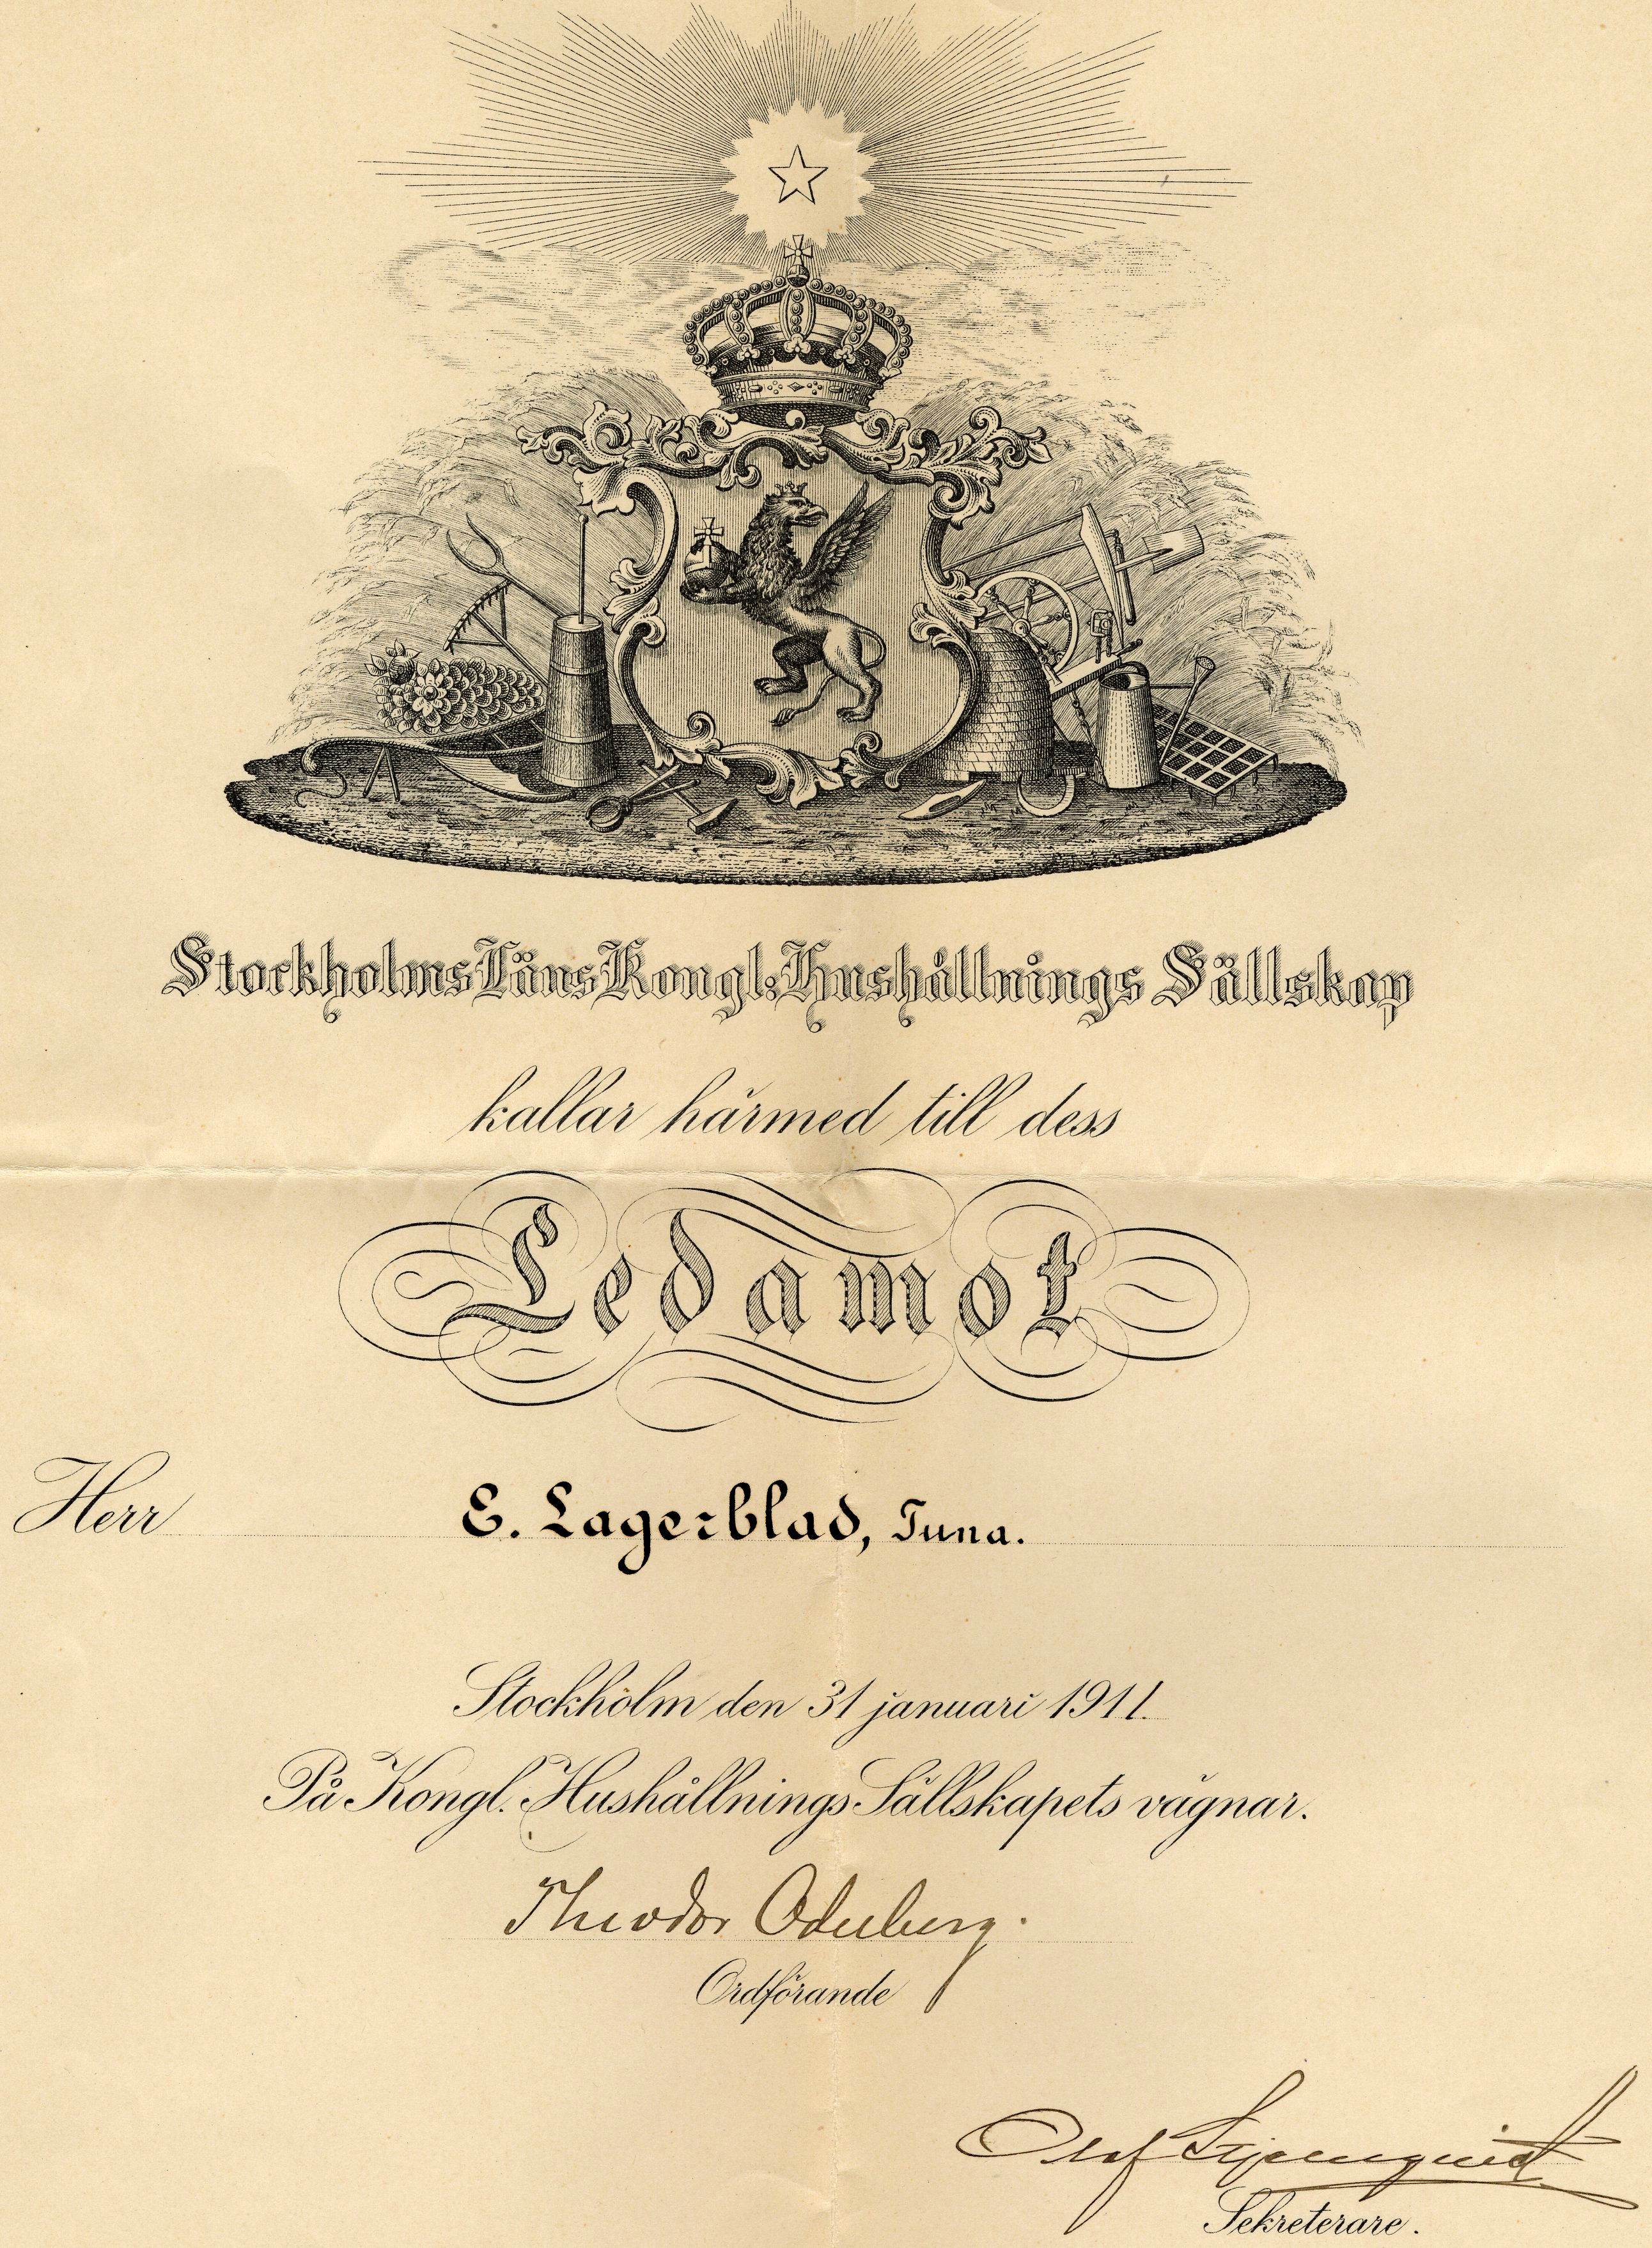 Stockholms Läns Kongl: Hushållnings Sällskap
kallar härmed till dess
Ledamot
Herr E. Lagerblad, Tuna.
Stockholm den 31 januari 1911.
På Kongl. Hushållnings Sällskapets vägnar.
Theodor Odelberg.
Ordförande
Olof
Sekreterare.